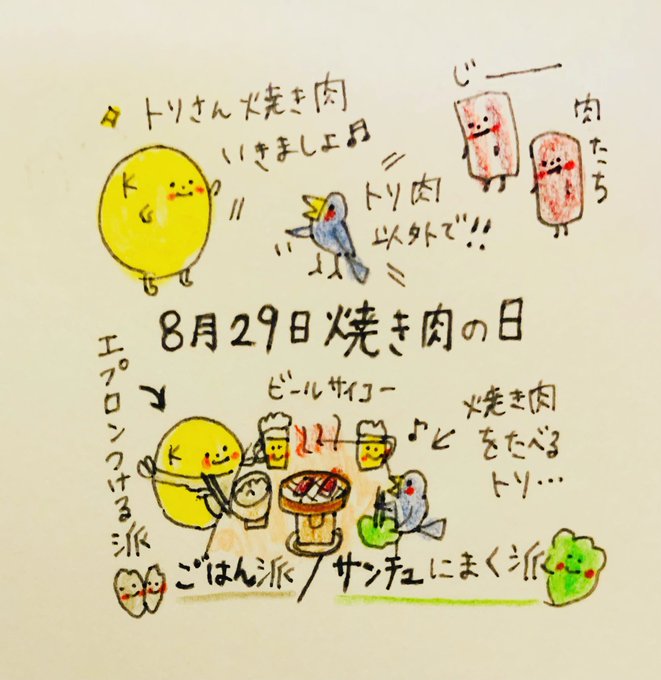 トリさん焼き肉
いきましょ♬
K
トリ肉
以外で!!
じーーー
肉たち
8月29日焼き肉の日
エプロンつける派
ビールサイコー
K
♪
焼き肉
をたべる
トリ…
ごはん派/サンチュにまく派